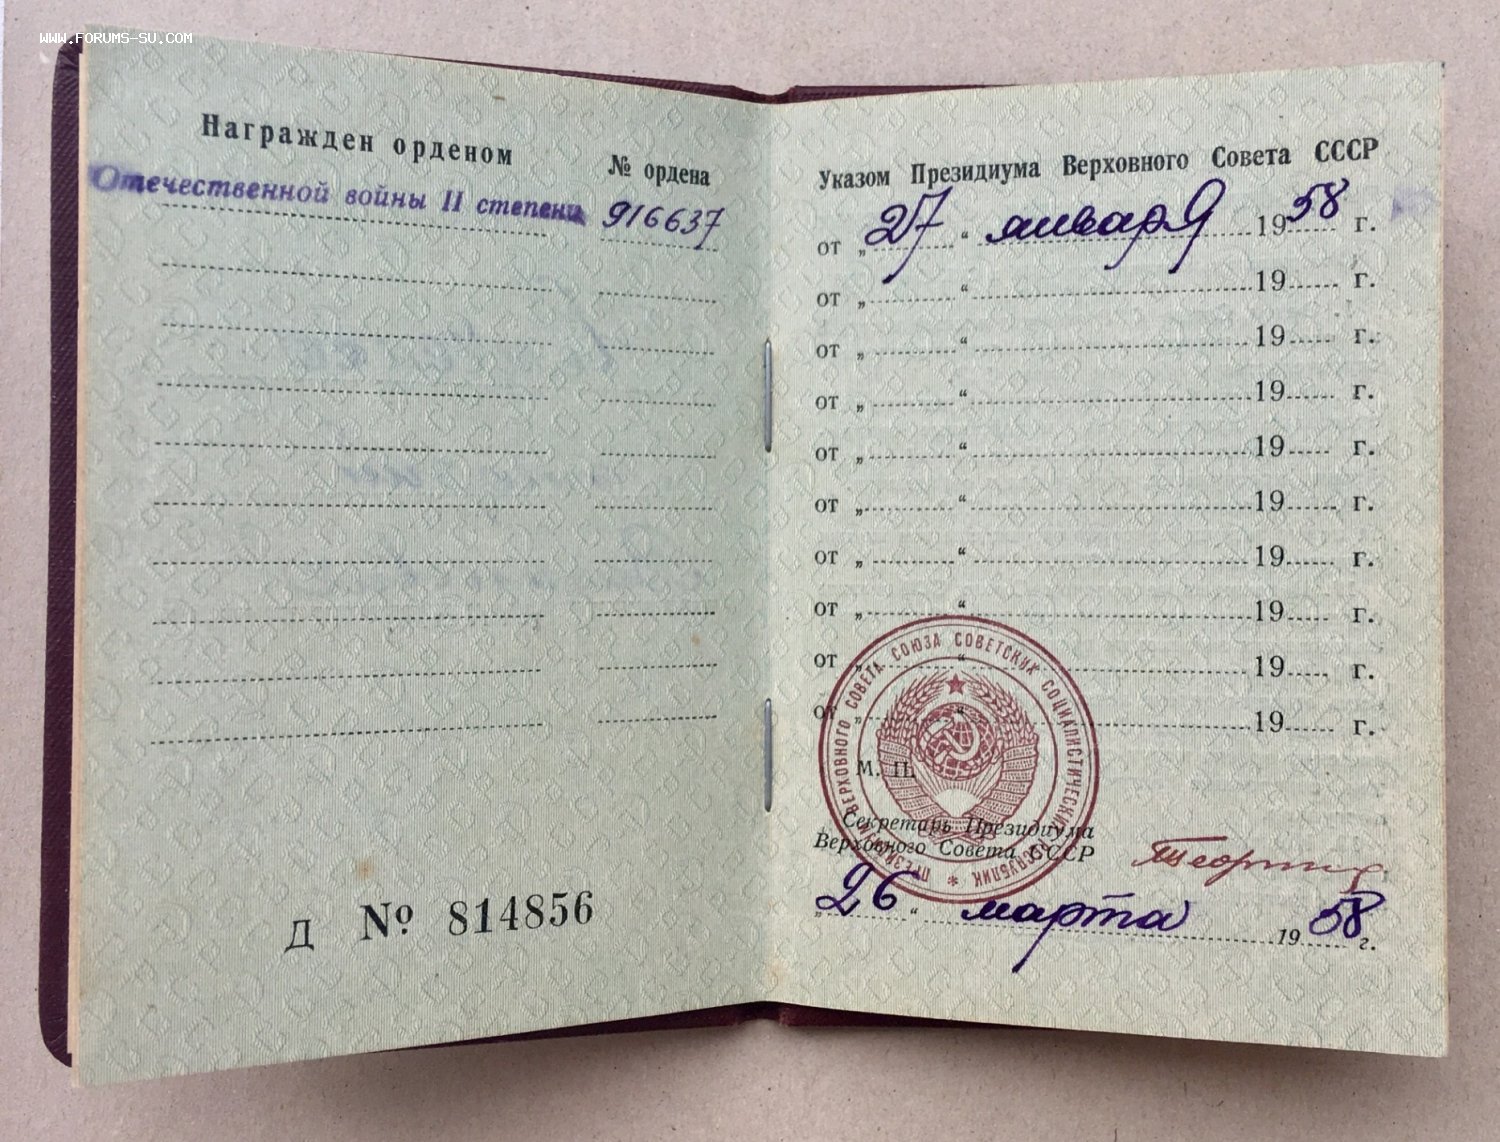 WWW.FORUMS-SU.COM
Награжден орденом
№ ордена
Отечественной войны II степени 916637
Д № 814856
Указом Президиума Верховного Совета СССР
от „27“ января 1958 г.
от „ “ 19 г.
от „ “ 19 г.
от „ “ 19 г.
от „ “ 19 г.
от „ “ 19 г.
от „ “ 19 г.
от „ “ 19 г.
от „ “ 19 г.
от „ “ 19 г.
ПРЕЗИДИУМ ВЕРХОВНОГО СОВЕТА СОЮЗА СОВЕТСКИХ СОЦИАЛИСТИЧЕСКИХ РЕСПУБЛИК
М. П.
Секретарь Президиума
Верховного Совета СССР
„26“ марта 1958 г.